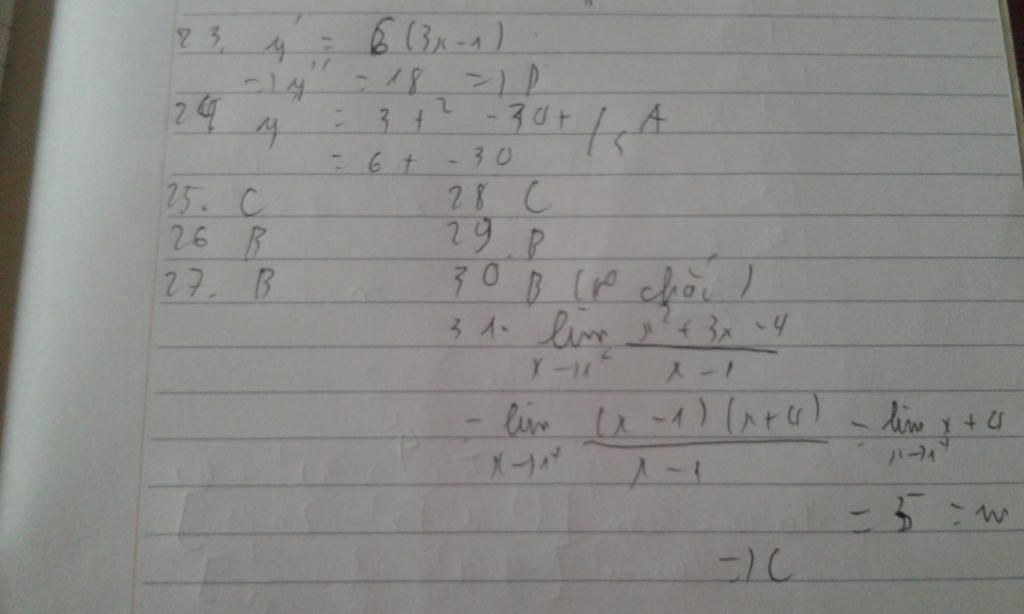 23. y' = 6(3x-1)
=> y'' = 18 => D
24 y = 3t² - 30t
= 6t - 30
A
25. C 28 C
26 B 29. B
27. B 30 B (ko chắc)
31. lim x→1⁺ (x² + 3x - 4)/(x - 1)
= lim x→1⁺ ((x - 1)(x + 4))/(x - 1) = lim x→1⁺ x + 4
= 5 = m
=> C